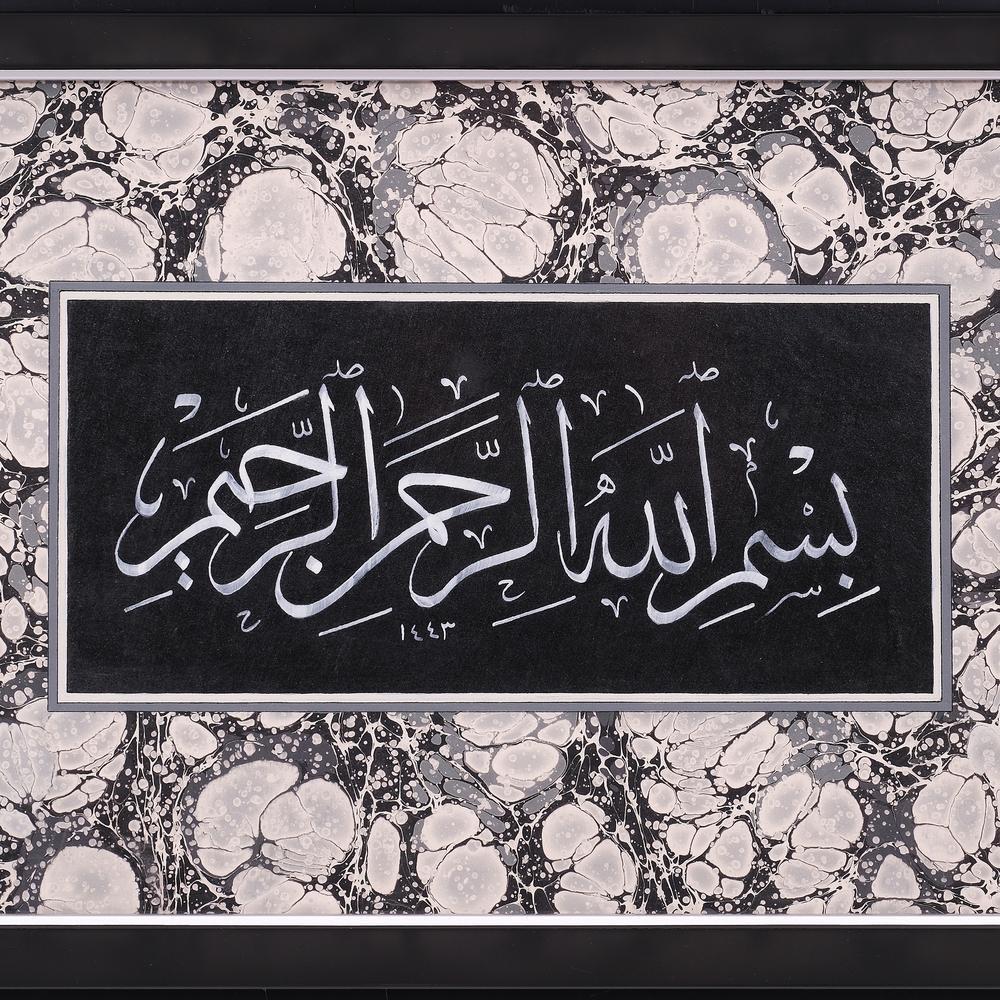 بِسْمِ ٱللَّهِ ٱلرَّحْمَٰنِ ٱلرَّحِيمِ
١٤٤٣